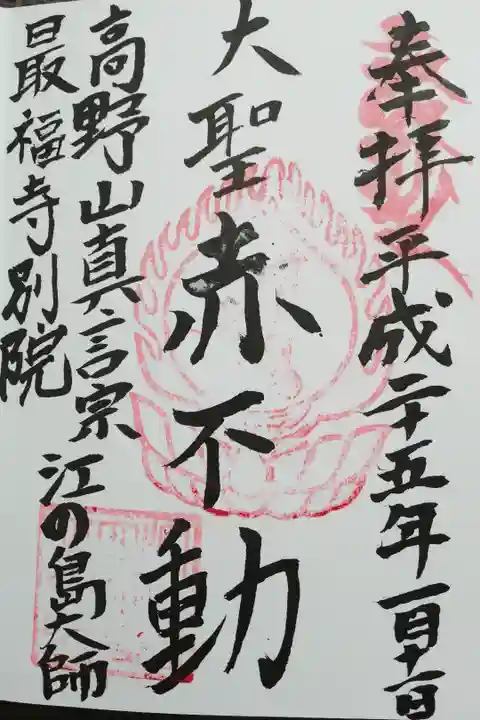 奉拝平成二十五年一月十一日
大聖赤不動
高野山真言宗
最福寺別院
江の島大師